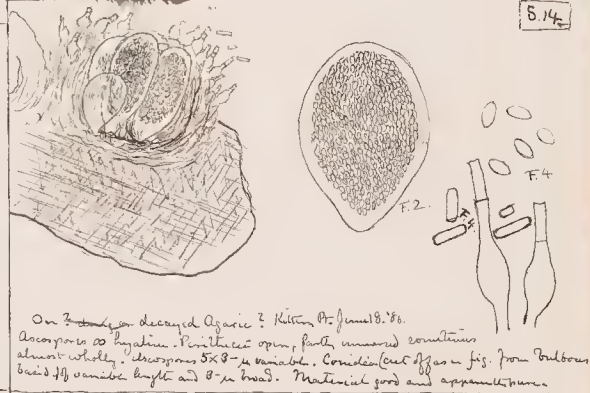 S.14
F.2.
F.4
F.4.
On ? dung or decayed Agaric ? Kittery Pt. June 18. '86.
Ascospores ∞ hyaline. Perithecia open, partly immersed sometimes
almost wholly. Ascospores 5x3-µ variable. Conidia (cut off as in fig. from bulbous
basid.) of variable length and 3-µ broad. Material good and apparently pure